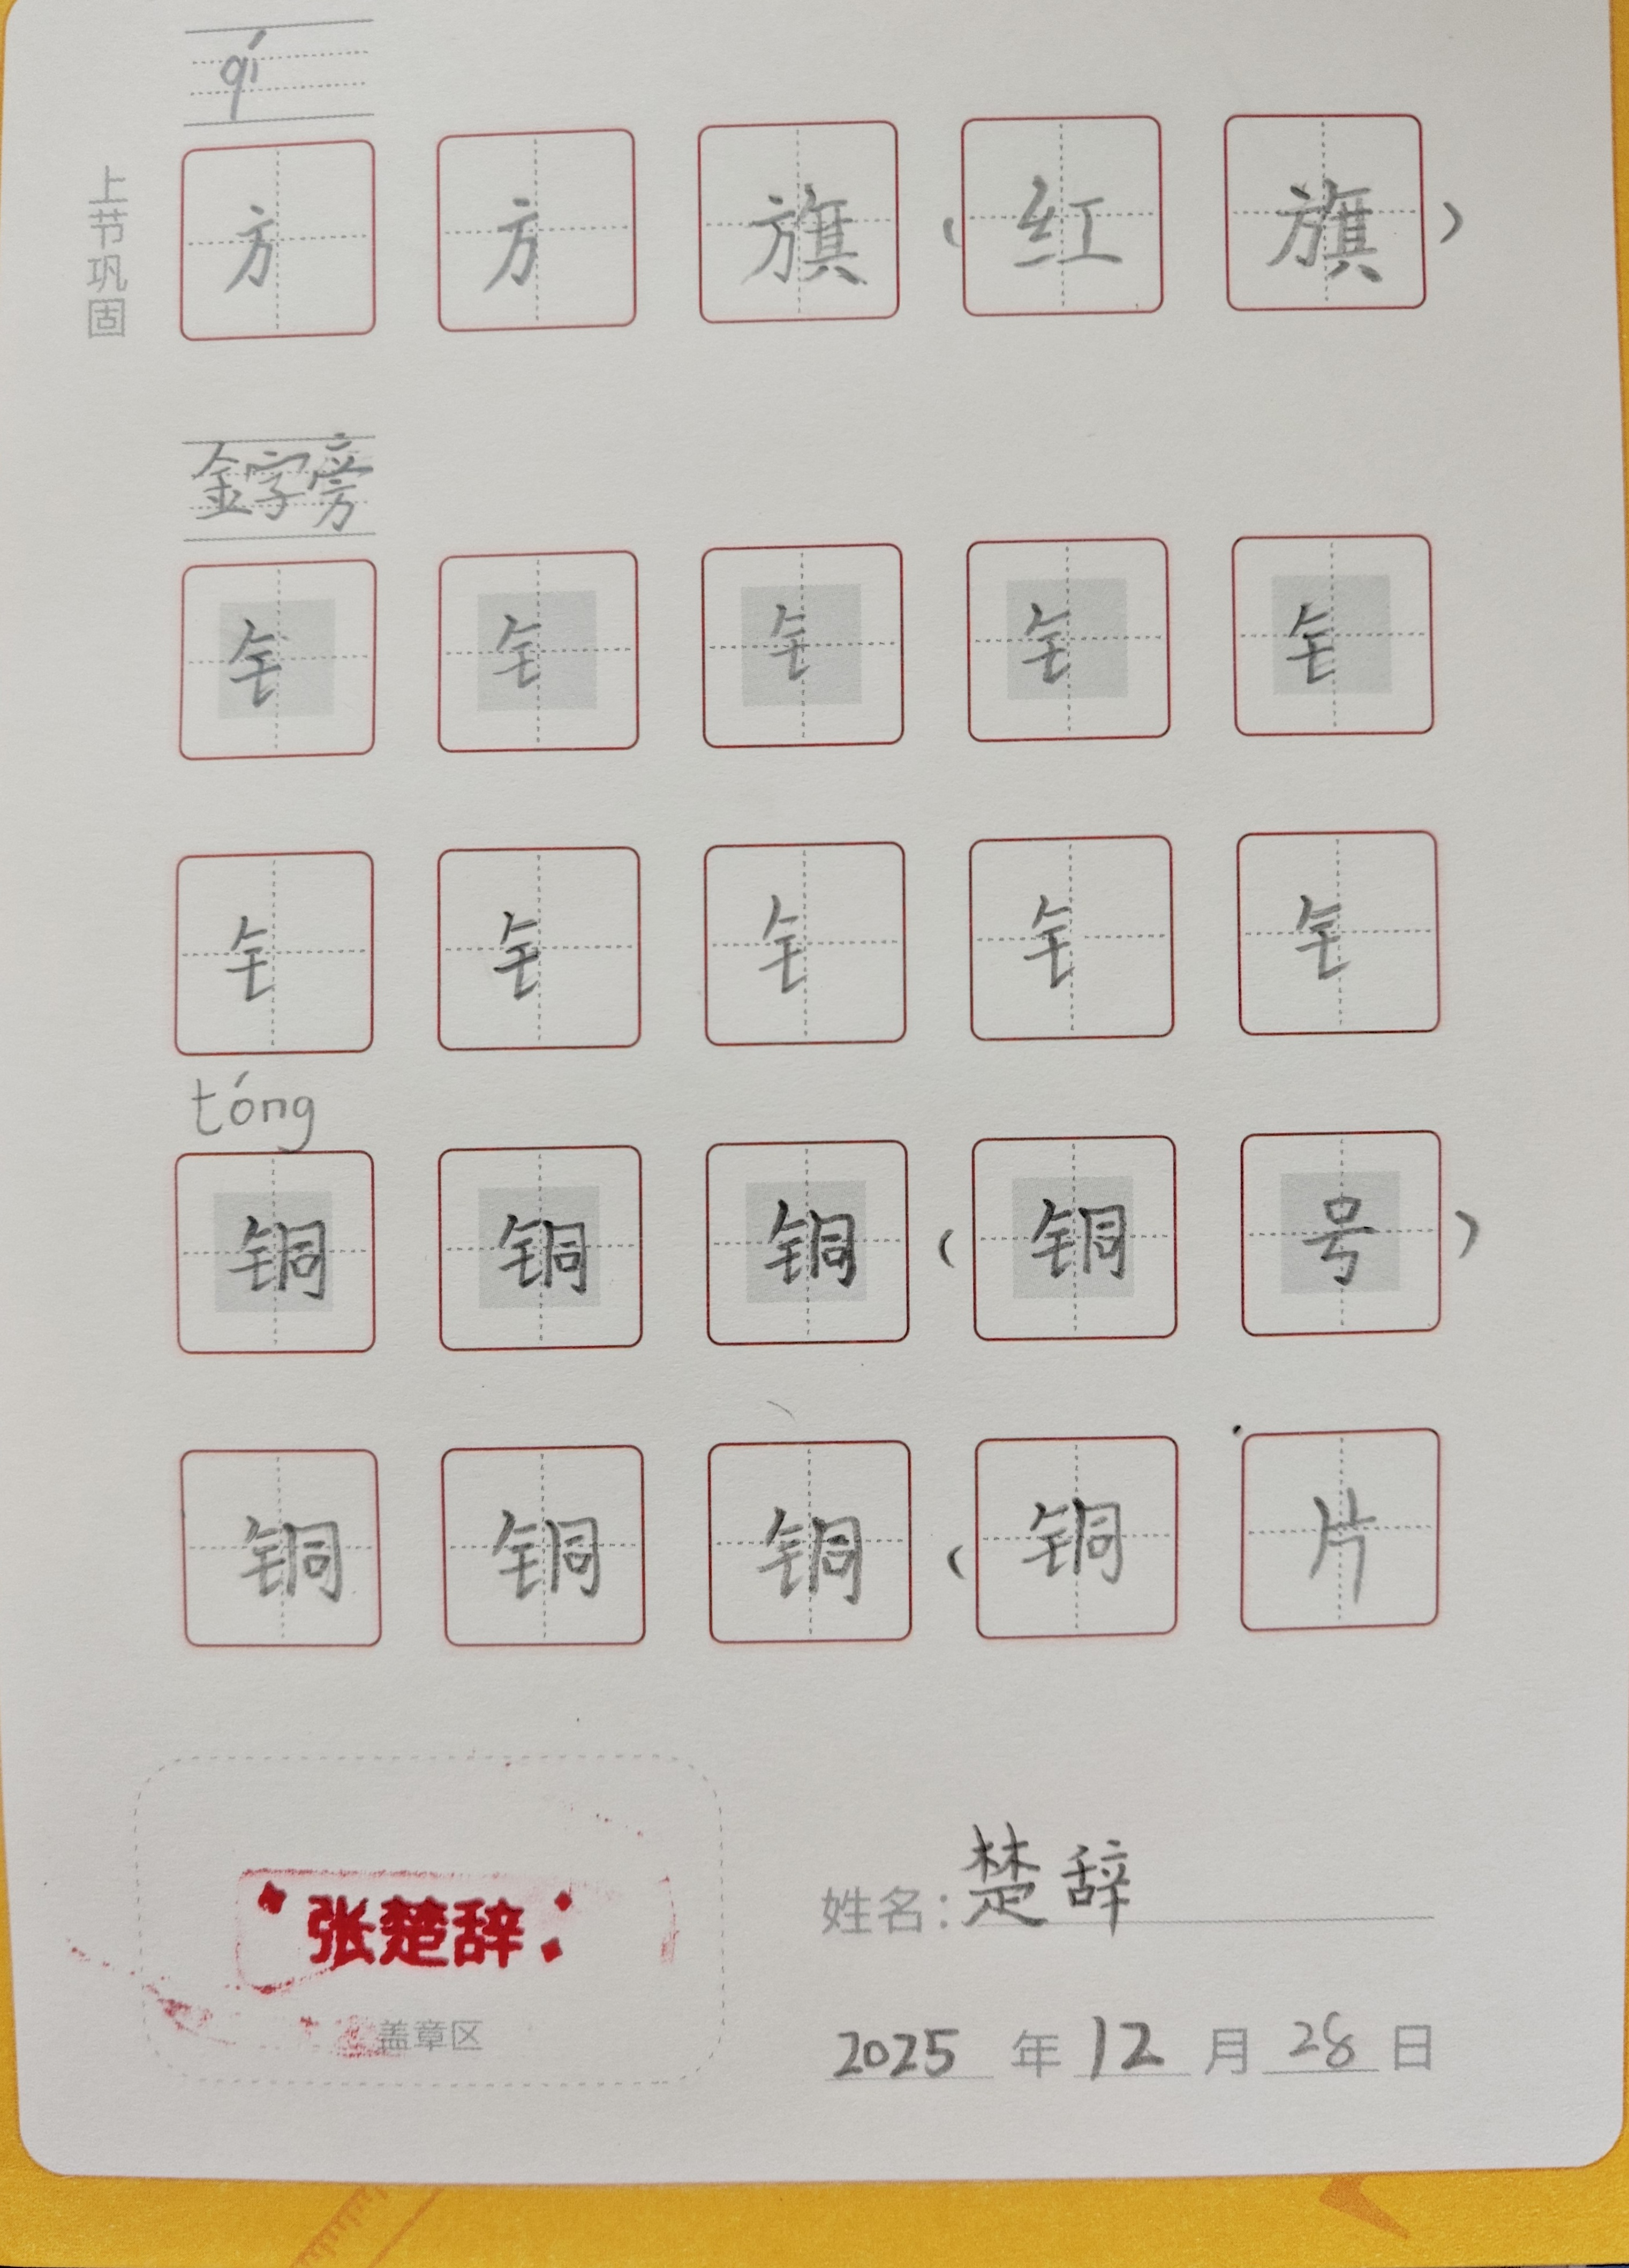 qí
上节巩固
方 方 旗 （红 旗）
金字旁
钅 钅 钅 钅 钅
钅 钅 钅 钅 钅
tóng
铜 铜 铜 （铜 号）
铜 铜 铜 （铜 片
张楚辞
盖章区
姓名：楚辞
2025 年 12 月 28 日